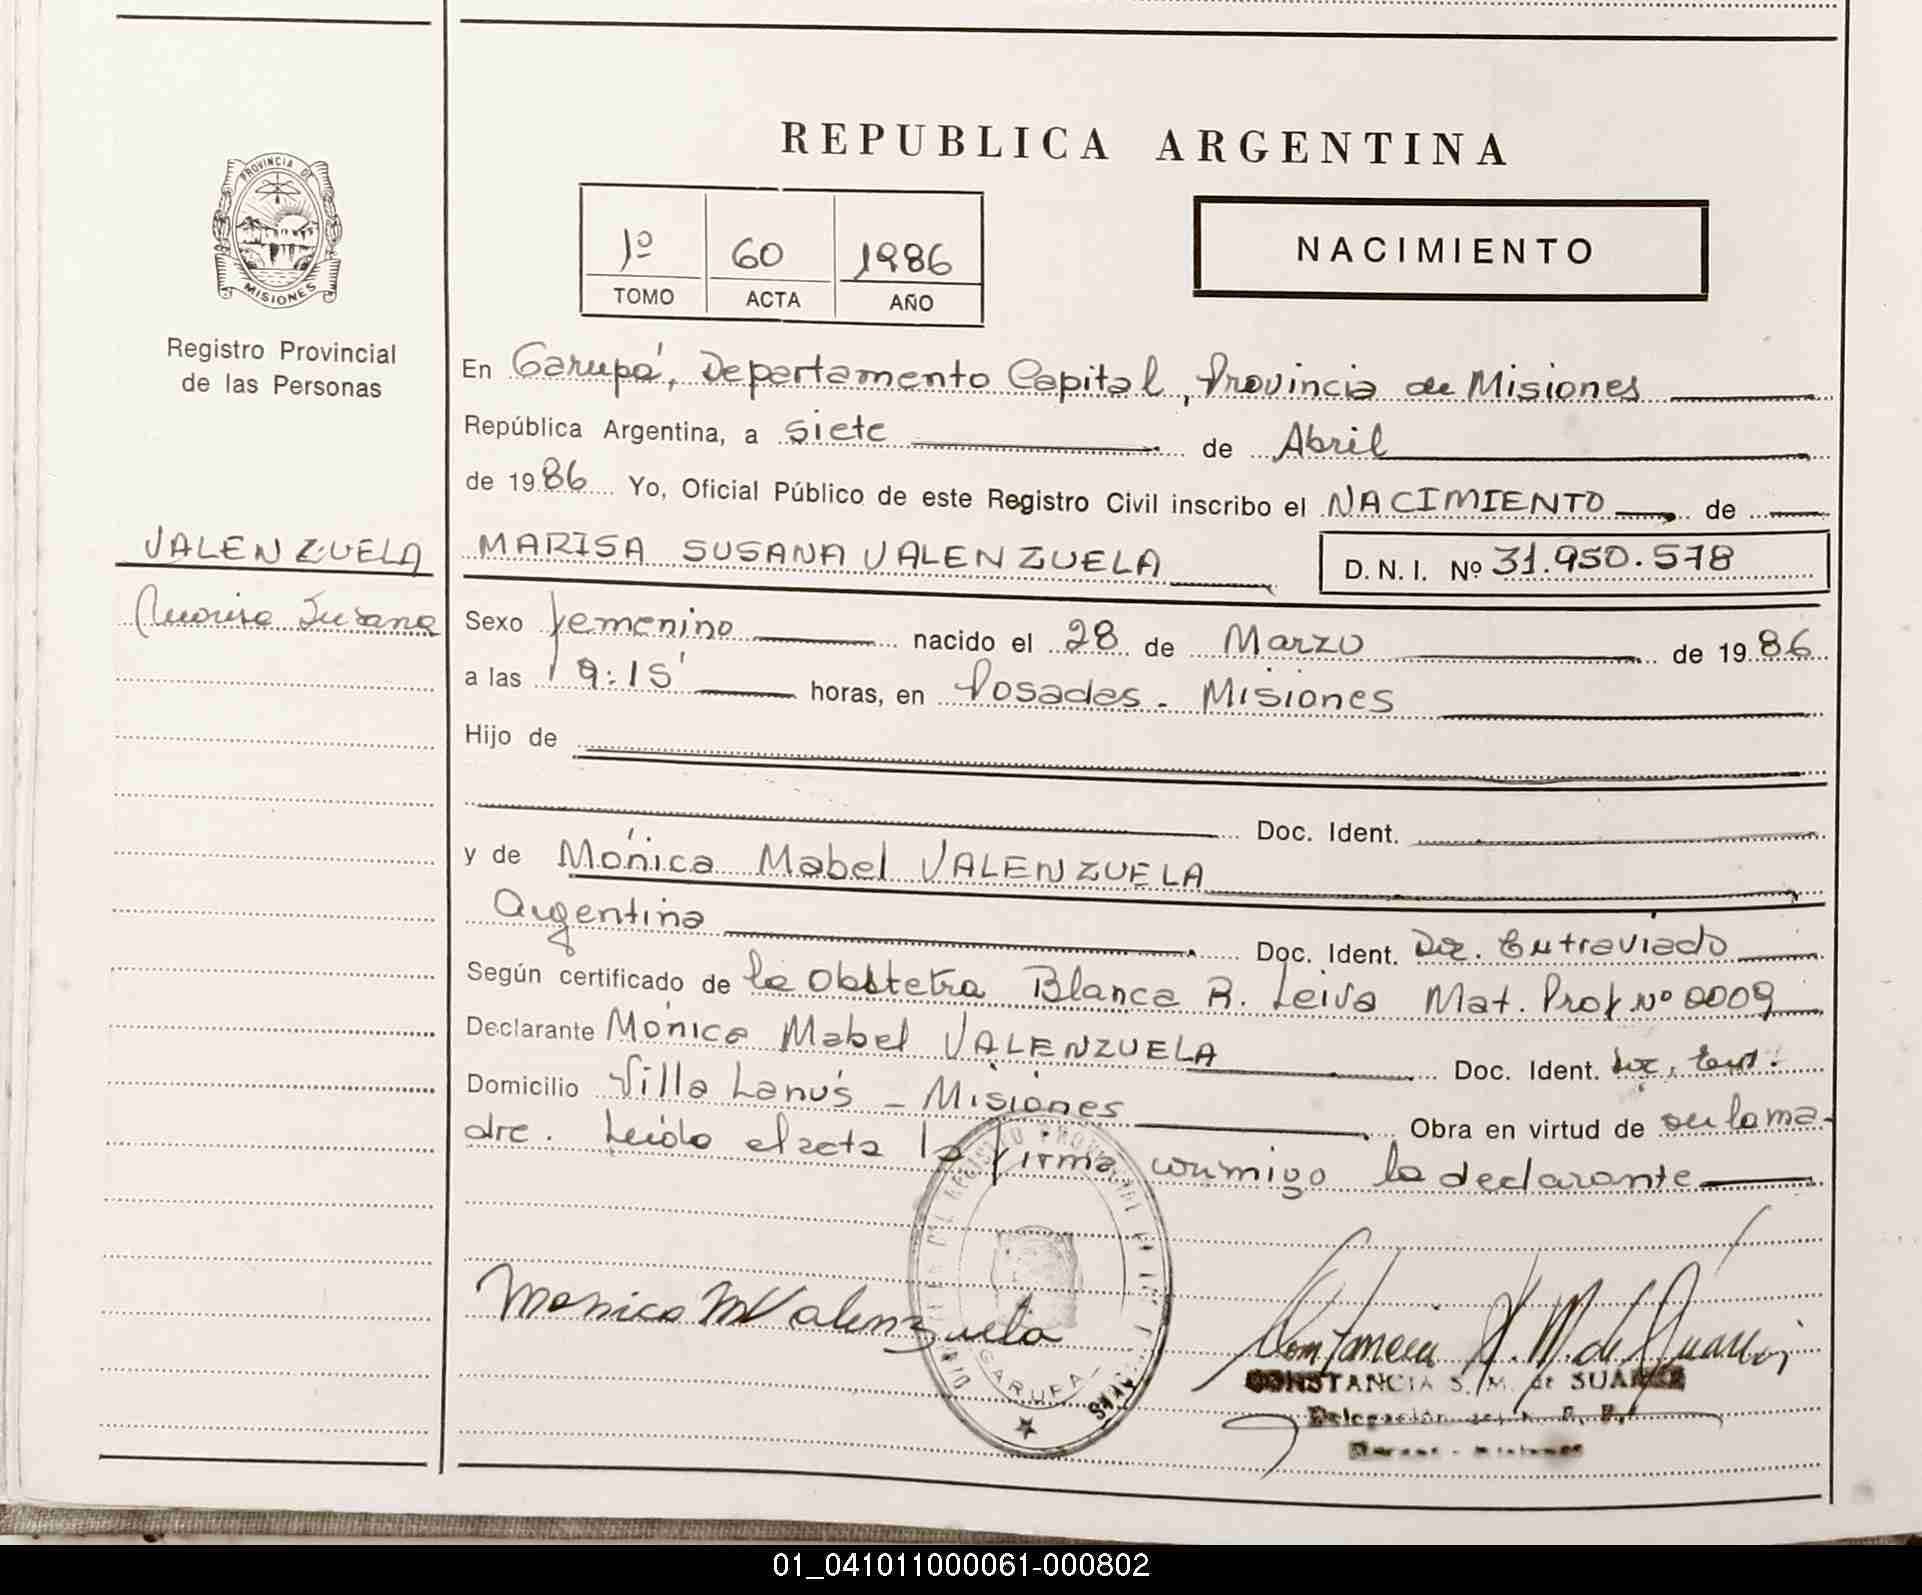 REPUBLICA ARGENTINA
PROVINCIA DE
MISIONES
1º 60 1986
TOMO ACTA AÑO
NACIMIENTO
Registro Provincial
de las Personas
En Garupá, Departamento Capital, Provincia de Misiones
República Argentina, a siete de Abril
de 1986 Yo, Oficial Público de este Registro Civil inscribo el NACIMIENTO de
VALENZUELA
Marisa Susana
MARISA SUSANA VALENZUELA D.N.I. Nº 31.950.578
Sexo femenino nacido el 28 de Marzo de 1986
a las 19:15' horas, en Posadas - Misiones
Hijo de
Doc. Ident.
y de Mónica Mabel VALENZUELA
Argentina Doc. Ident. Doc. Extraviado
Según certificado de la Obstetra Blanca R. Leiva Mat. Prof. Nº 0009
Declarante Mónica Mabel VALENZUELA Doc. Ident. Doc. Ext.
Domicilio Villa Lanús - Misiones Obra en virtud de ser la ma-
dre. Leída el acta la firma conmigo la declarante
Monica M Valenzuela
GARUPA
CONSTANCIA S. M. de SUAREZ
01_041011000061-000802